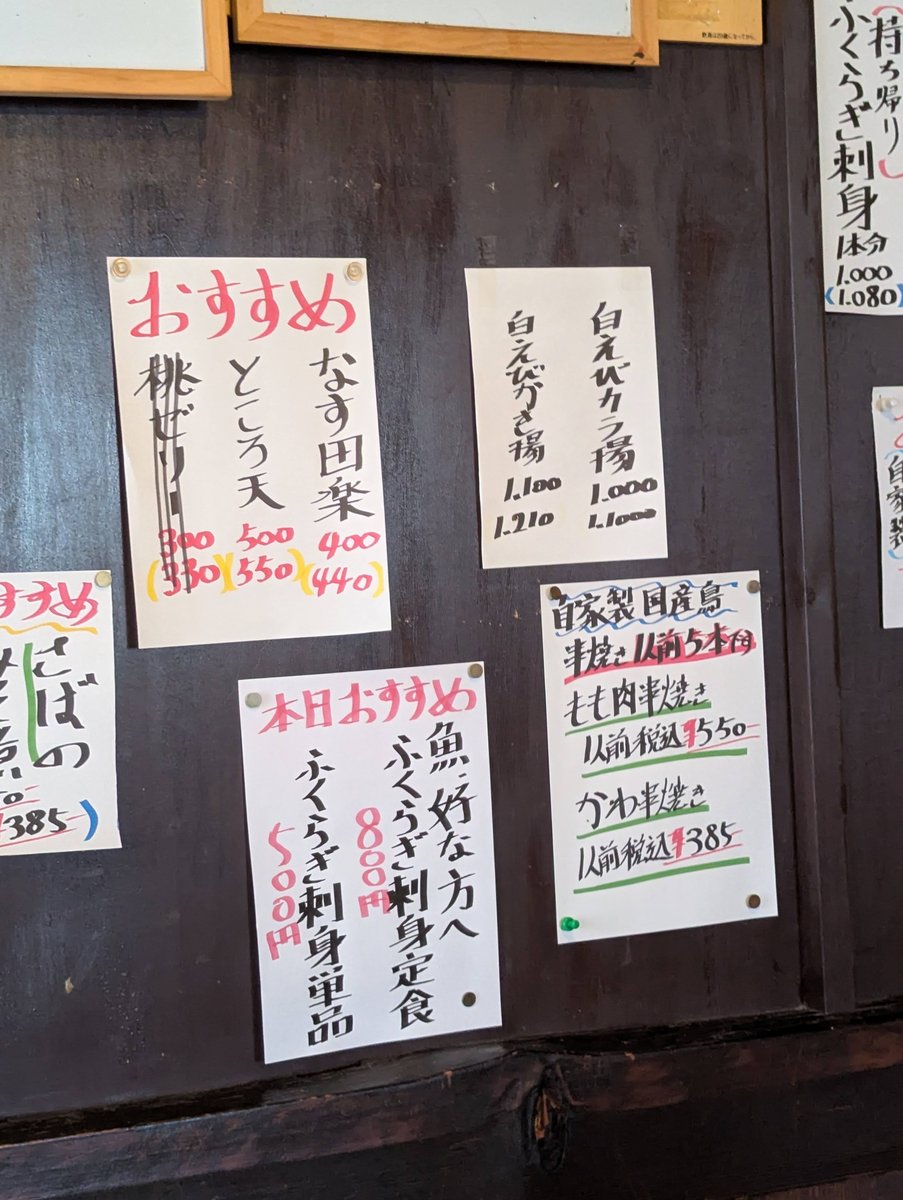 飲酒は20歳になってから。
(持ち帰り)
ふくらぎ刺身
1本分
1.000
(1.080)
おすすめ
なす田楽
400
(440)
ところ天
500
(550)
桃ゼリー
300
(330)
白えびカラ揚
1.000
1.1000
白えびかき揚
1.100
1.210
自家製
自家製国産鳥
串焼き 1人前5本です
もも肉串焼き
1人前税込¥550
かわ串焼き
1人前税込¥385
すすめ
さばの
385)
本日おすすめ
魚好な方へ
ふくらぎ刺身定食
800円
ふくらぎ刺身単品
500円